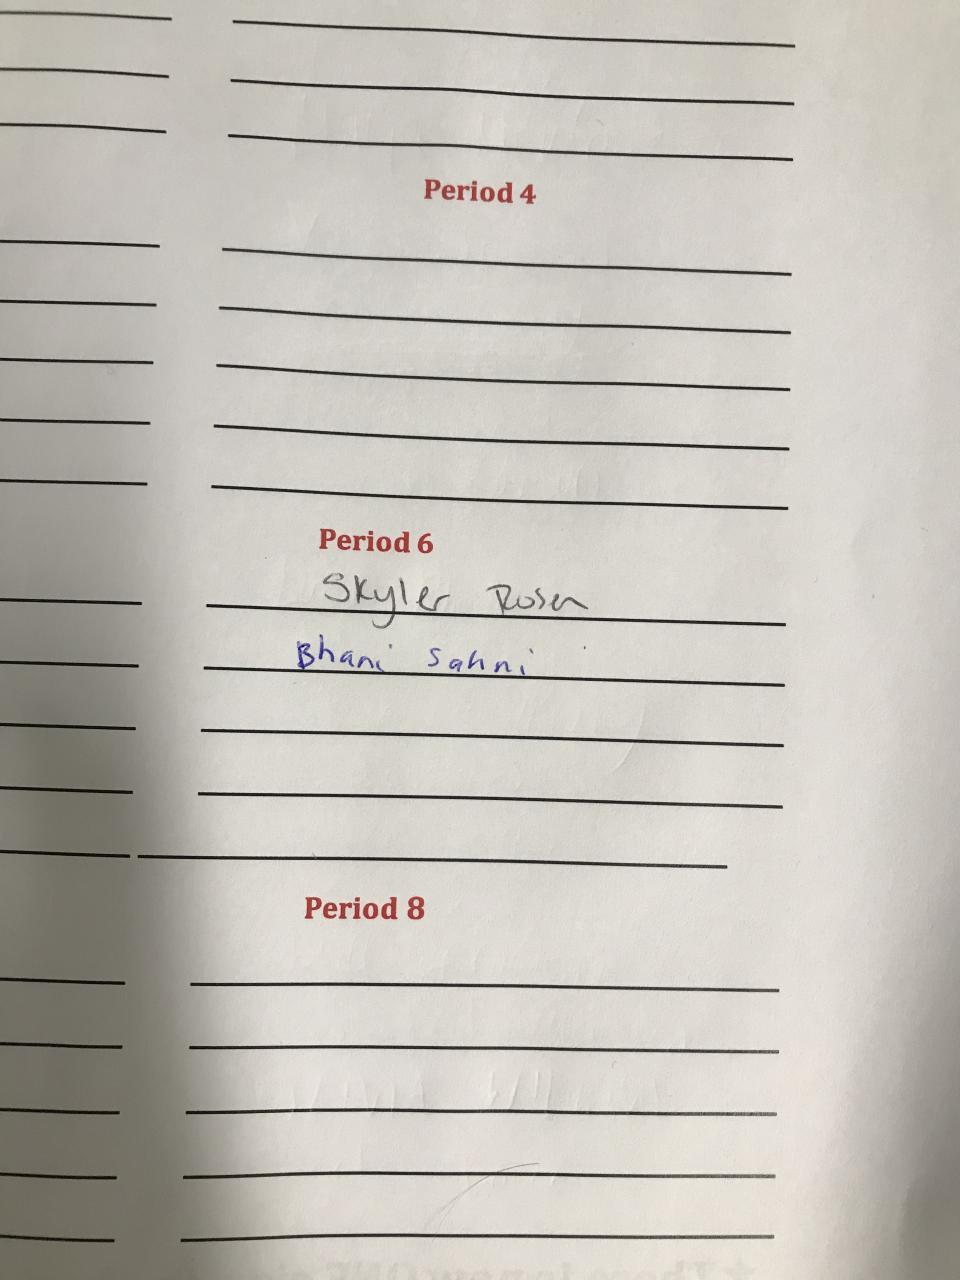 Period 4
Period 6
Skyler Rosen
Bhani Sahni
Period 8